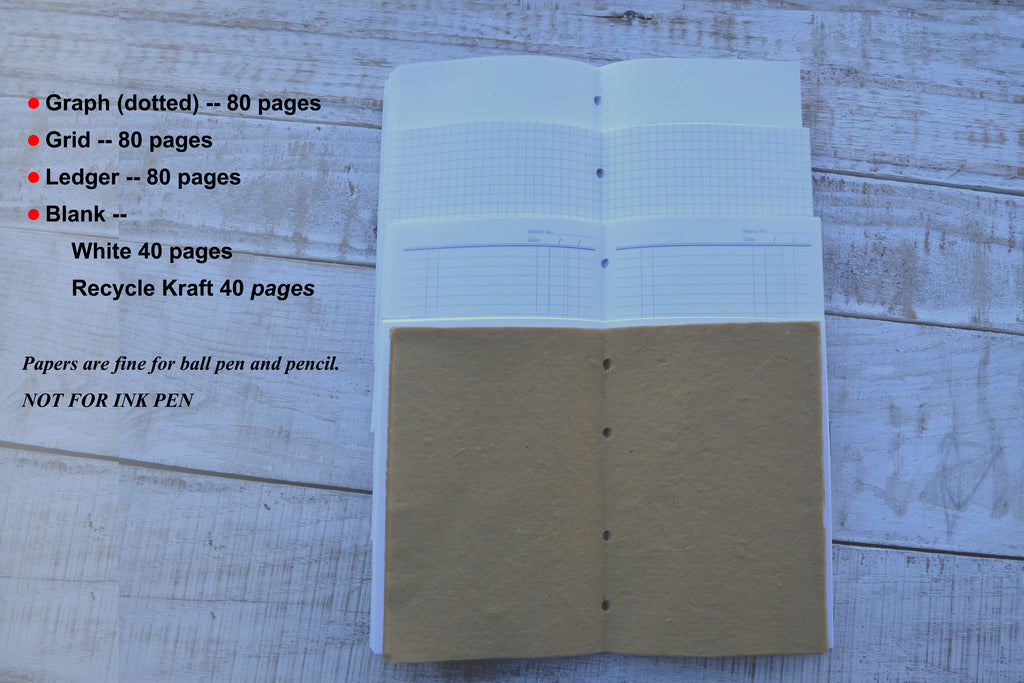 Graph (dotted) -- 80 pages
Grid -- 80 pages
Ledger -- 80 pages
Blank --
White 40 pages
Recycle Kraft 40 pages
Papers are fine for ball pen and pencil.
NOT FOR INK PEN
Memo No.
Date / /
Memo No.
Date / /